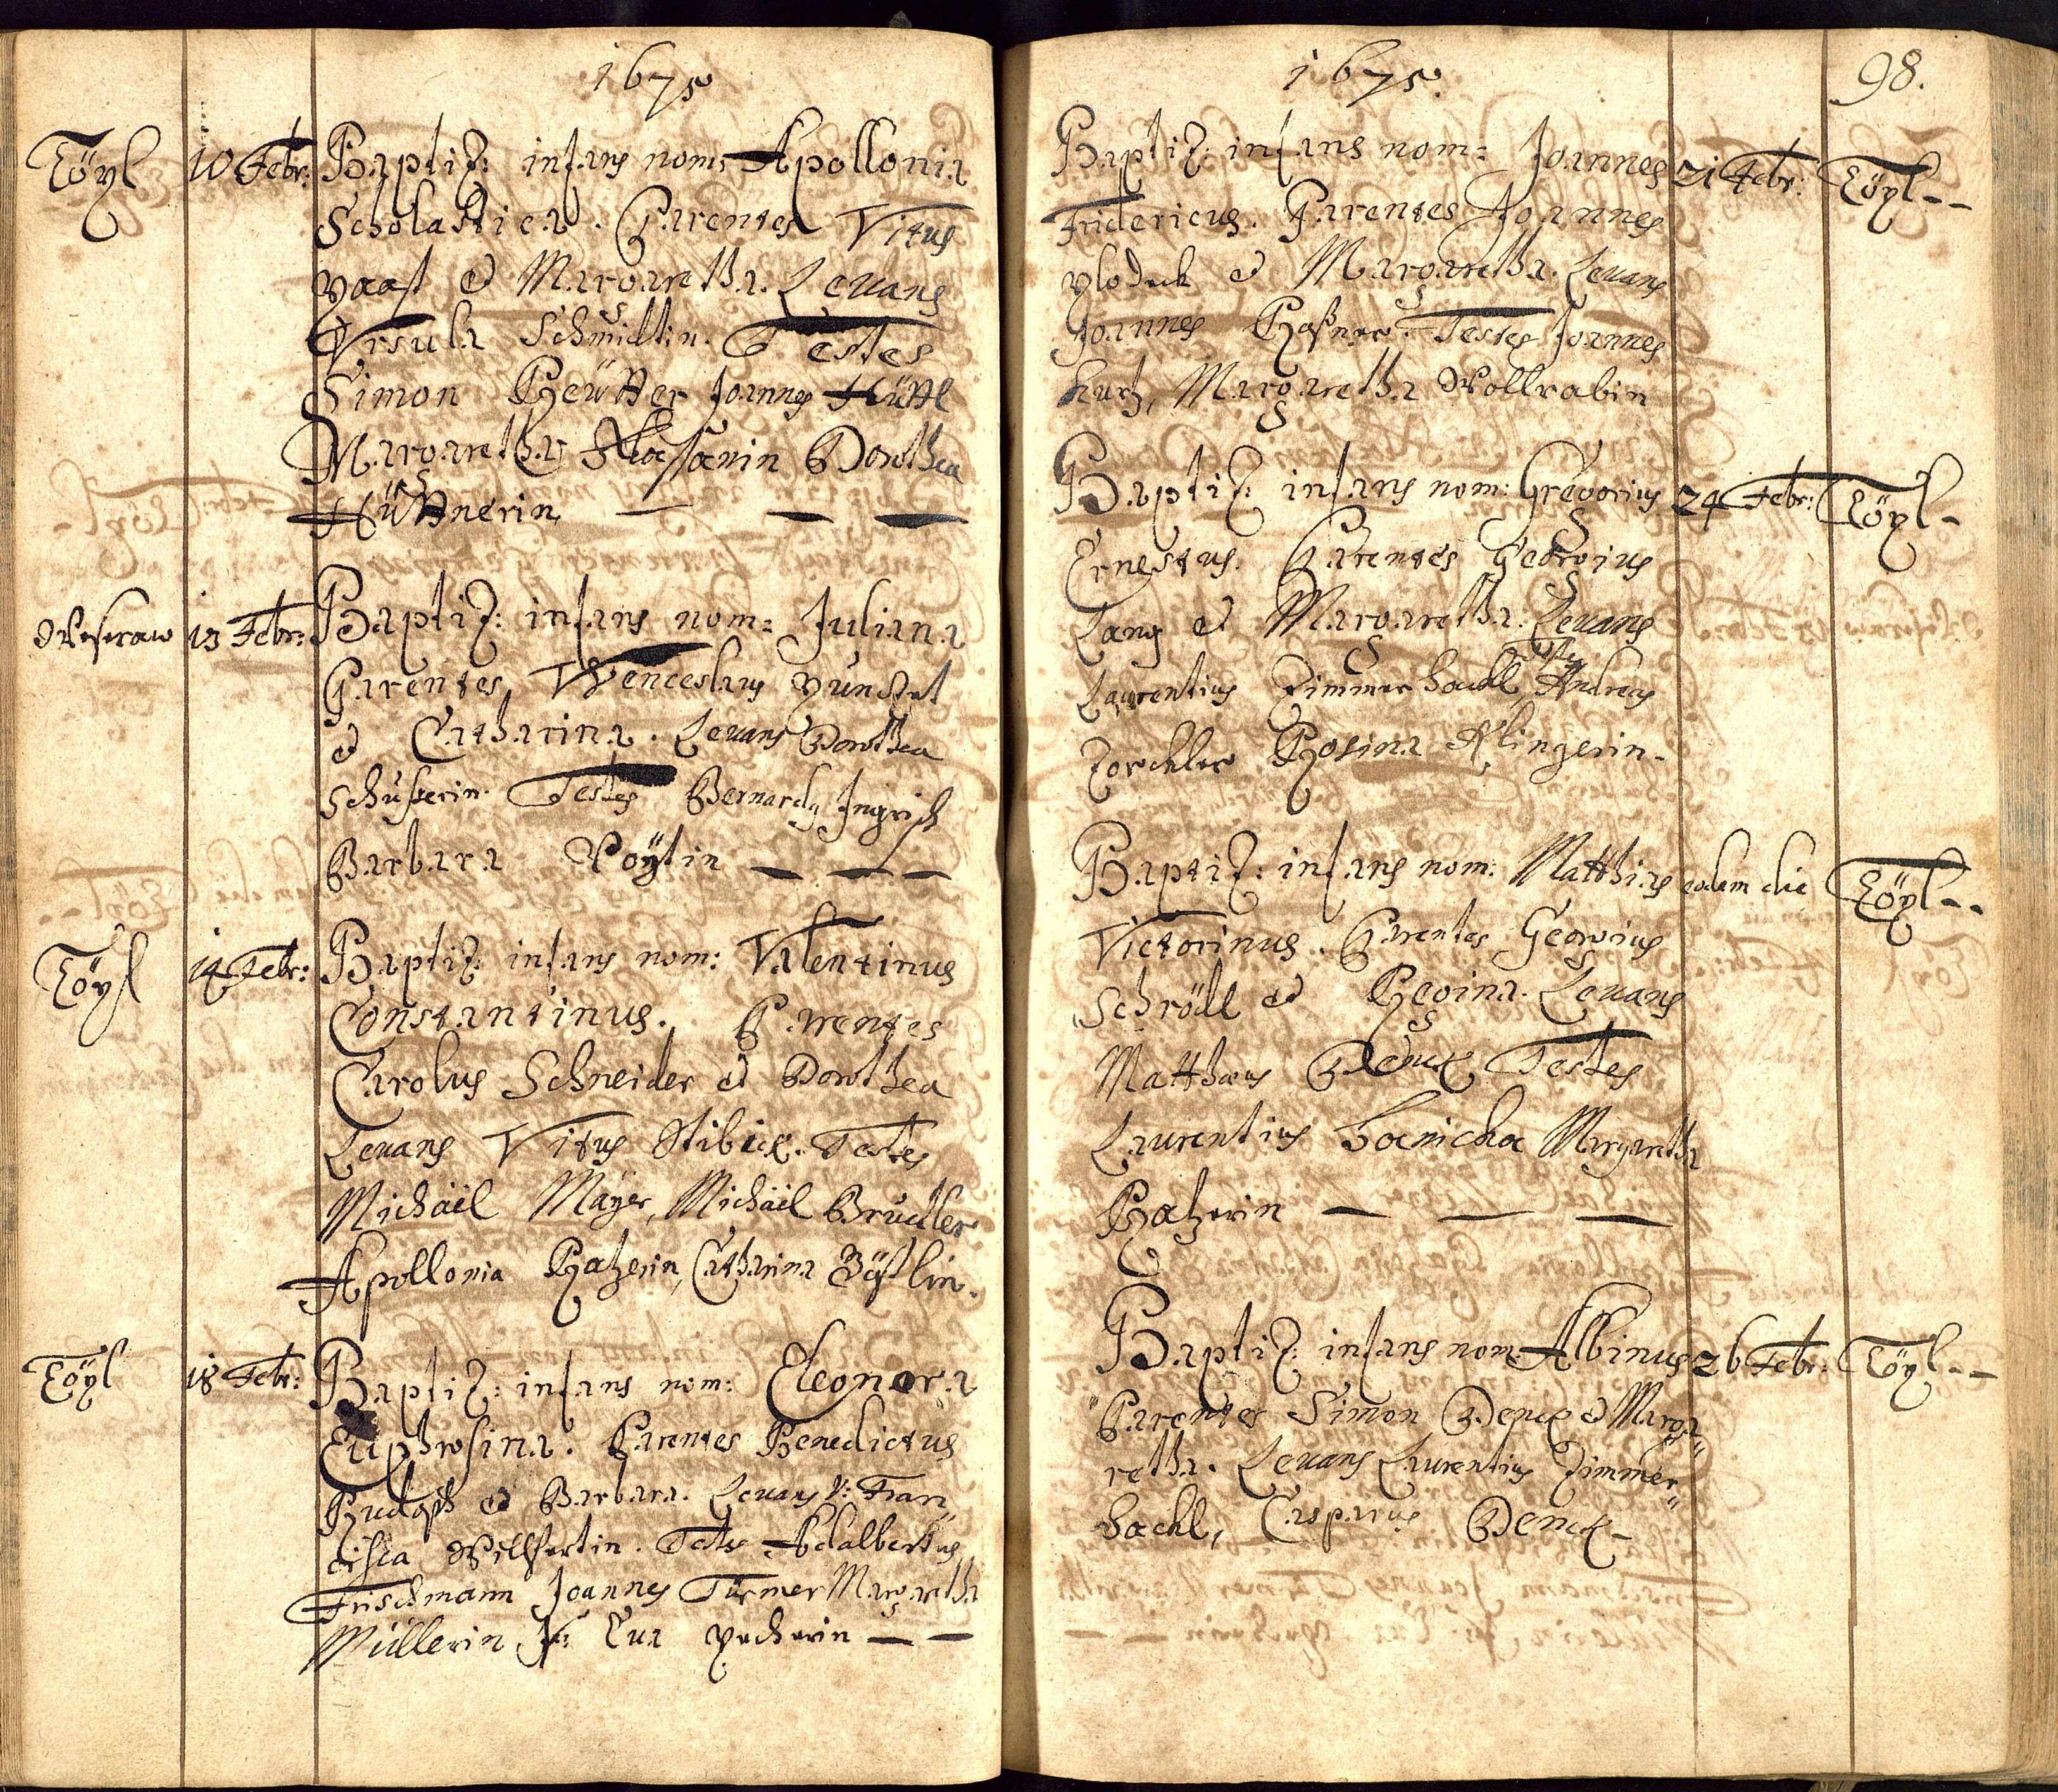 1675
Töyl 10 Febr: Baptiz: infans nom: Apollonia
Scholastica. Parentes Vitus
et Margaretha. Levans
Vrsula Schmidtin. Testes
Simon Joannes Hüttl
Margaretha Dorothea
Hüttnerin
13 Febr: Baptiz: infans nom: Juliana
Parentes Wenceslaus
et Catharina. Levans Dorothea
Schusterin. Testes Bernardus
Barbara Poÿtin
Töyl 14 Febr: Baptiz: infans nom: Valentinus
Constantinus. Parentes
Carolus Schneider et Dorothea
Levans Vitus Stibick. Testes
Michäel Mayer, Michäel
Apollonia Ratzerin, Catharina
Töyl 18 Febr: Baptiz: infans nom: Eleonora
Euphrosina. Parentes Benedictus
Rudolph et Barbara. Levans V: Fran
cisca Testes Adalbertus
Frischmann Joannes Türmer Margaretha
Müllerin Eua
1675. 98.
Baptiz: infans nom: Joannes 21 Febr: Töyl
Fridericus. Parentes Joannes
et Margaretha. Levans
Joannes Testes Joannes
Kurtz, Margaretha Vollrabin
Baptiz: infans nom: Gregorius 24 Febr: Töyl
Ernestus. Parentes Georgius
Lang et Margaretha. Levans
Testes
Laurentius Zimmerhackl Andreas
Rosina Klingerin
Baptiz: infans nom: Matthias eodem die Töyl
Victorinus. Parentes Georgius
Schrödl et Regina. Levans
Matthaeus Denck Testes
Laurentius Margaretha
Ratzerin
Baptiz: infans nom: Albinus 26 Febr: Töyl
Parentes Simon Denck et Marga
retha. Levans Laurentius Zimmer
hackl, Casparus Denck